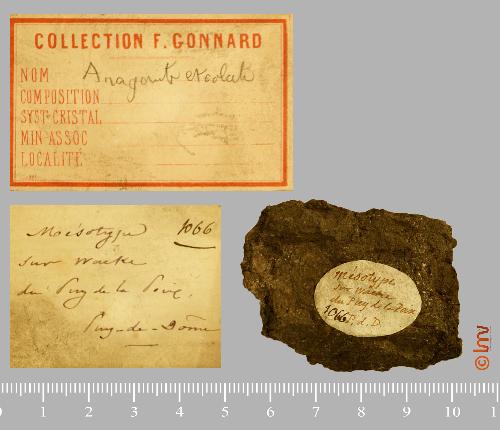 COLLECTION F. GONNARD
NOM Aragonite
COMPOSITION
SYST CRISTAL
MIN ASSOC
LOCALITÉ
Mésotype 1066
sur wacke
du Puy de la Poix,
Puy-de-Dôme
mésotype
sur wacke
du Puy de la Poix
1066 P.d.D
© lmv
1 2 3 4 5 6 7 8 9 10